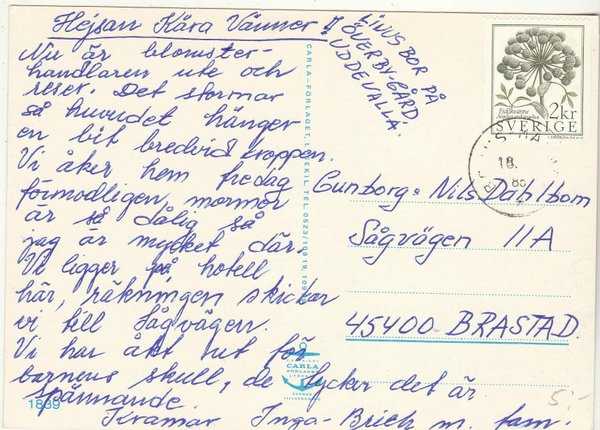 Hejsan Kära Vänner!!
LINUS BOR PÅ
ÖVERBY-GÅRD
UDDEVALLA!
Nu är blomster-
handlaren ute och
reser. Det stormar
så huvudet hänger
en bit bredvid kroppen.
Vi åker hem fredag
förmodligen, mormor
är så dålig så
jag är mycket där.
Vi ligger på hotell
här, räkningen skickar
vi till Sågvägen.
Vi har åkt ut för
barnens skull, de tycker det är
spännande.
Kramar Inga-Britt m. fam.
CARLA-FÖRLAGET, LYSEKIL. TEL. 0523/10919, 109
CARLA
FÖRLAGET
1839
2kr
SVERIGE
18.
Gunborg o Nils Dahlbom
Sågvägen 11A
45400-BRASTAD.
5:-